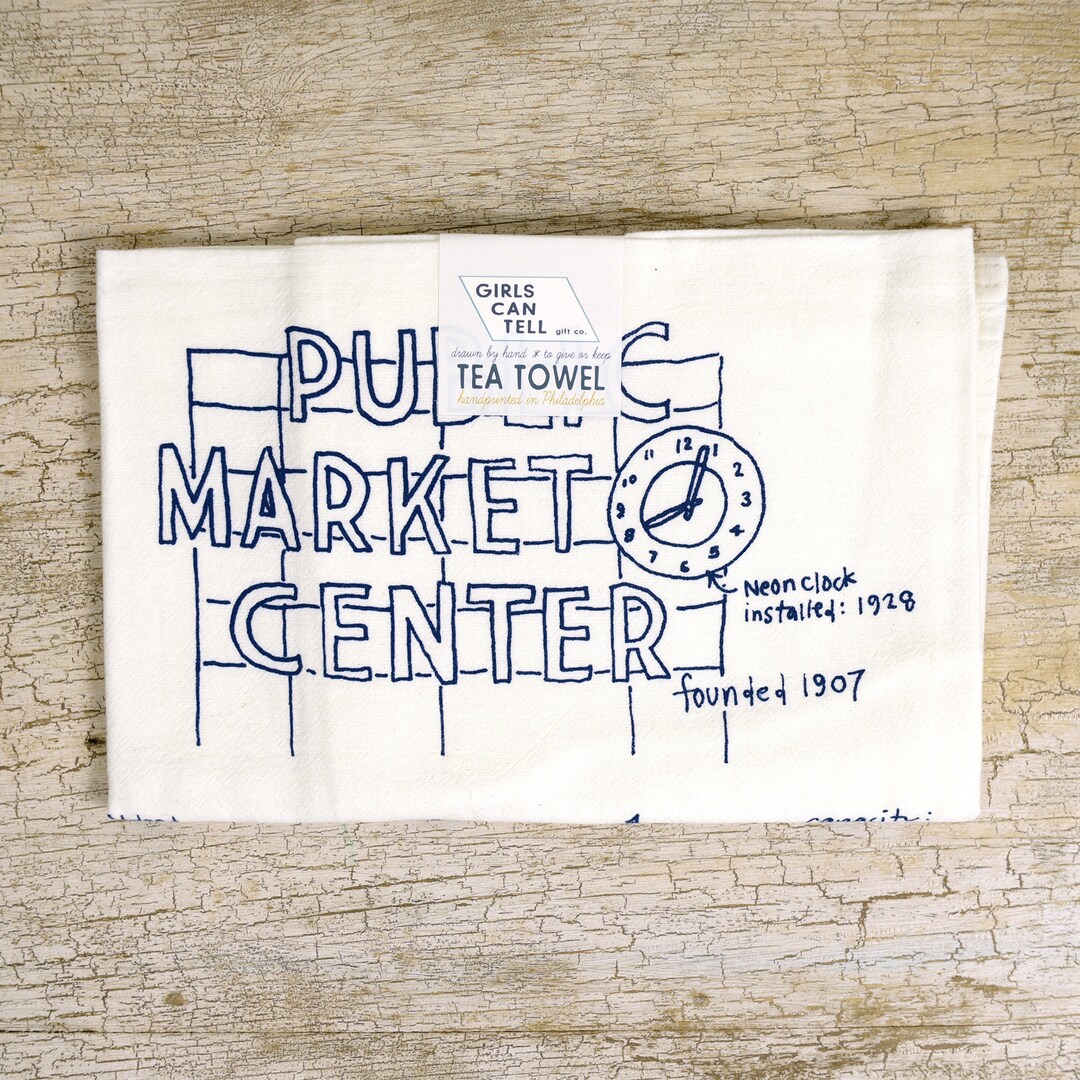 GIRLS
CAN
TELL gift co.
drawn by hand * to give or keep
TEA TOWEL
handprinted in Philadelphia
PUBLIC
MARKET
12 1 2 3 4 5 6 7 8 9 10 11
CENTER
Neon clock
installed: 1928
founded 1907
capacity: